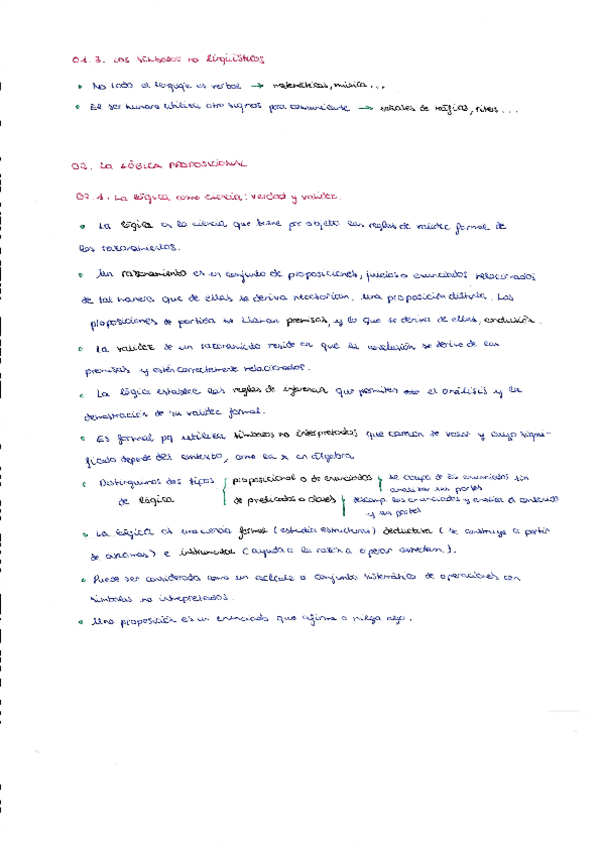 01.3. Los símbolos no lingüísticos
• No todo el lenguaje es verbal → matemáticas, música...
• El ser humano utiliza otro signos para comunicarse → señales de tráfico, ritos...
02. LA LÓGICA PROPOSICIONAL
02.1. La lógica como ciencia: verdad y validez.
• La lógica es la ciencia que tiene por objeto las reglas de validez formal de
los razonamientos.
• Un razonamiento es un conjunto de proposiciones, juicios o enunciados relacionados
de tal manera que de ellas se deriva necesariam. una proposición distinta. Las
proposiciones de partida se llaman premisas, y lo que se deriva de ellas, conclusión.
• La validez de un razonamiento reside en que la conclusión se derive de las
premisas y estén correctamente relacionados.
• La lógica establece las reglas de inferencia que permiten el análisis y la
demostración de su validez formal.
• Es formal pq utiliza símbolos no interpretados que carecen de valor y cuyo signi-
ficado depende del contexto, como la x en álgebra
• Distinguimos dos tipos de lógica
proposicional o de enunciados
se ocupa de los enunciados sin
analizar sus partes
de predicados o clases
descomp. los enunciados y analiza el contenido
y sus partes
• La lógica es una ciencia formal (estudia estructuras) deductiva (se construye a partir
de axiomas) e instrumental (ayuda a la razón a operar correctam.).
• Puede ser considerada como un cálculo o conjunto sistemático de operaciones con
símbolos no interpretados.
• Una proposición es un enunciado que afirma o niega algo.